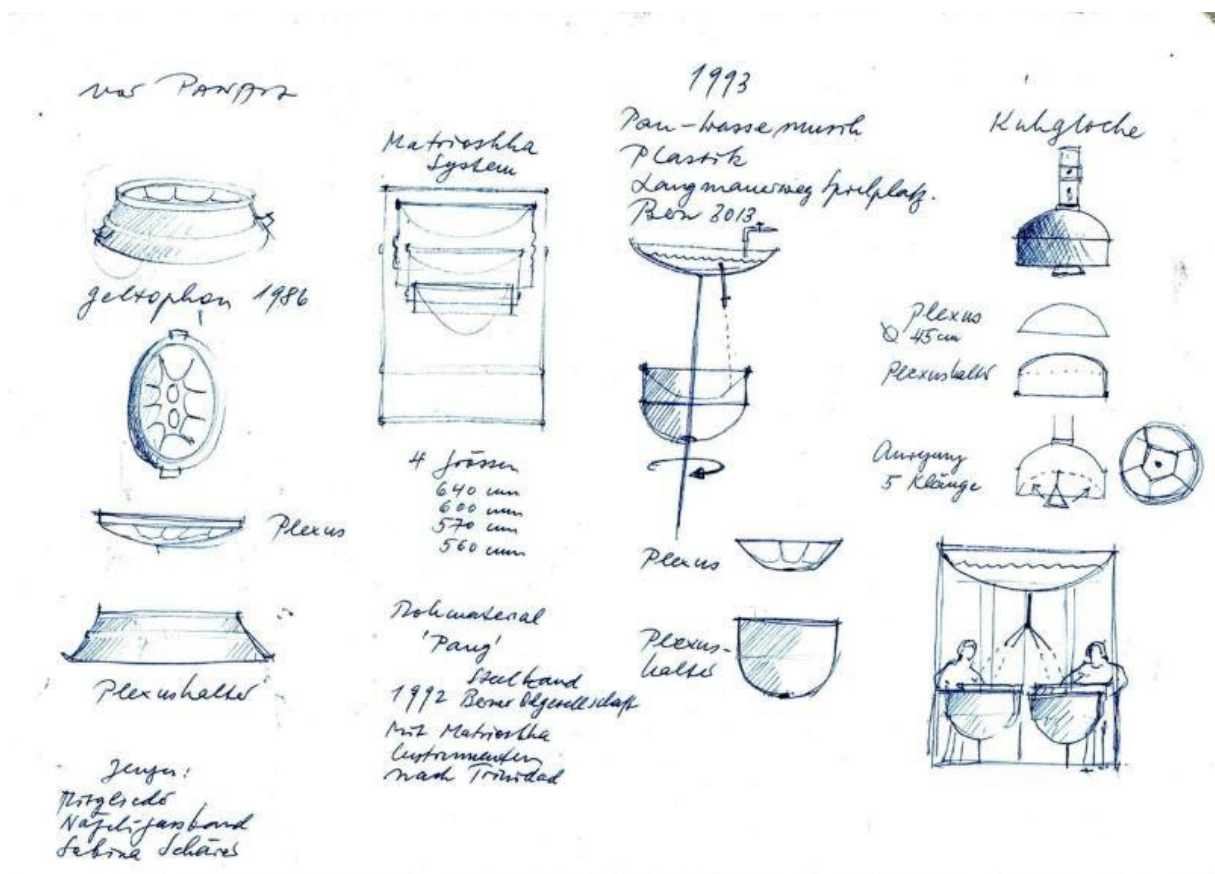 vor PANArt
geltophon 1986
Plexus
Plexushalter
Zeugen:
Mitglieder
Nägeligassband
Sabina Schärer
Matrioshka
System
4 Grössen
640 mm
600 mm
570 mm
560 mm
Rohmaterial
'Pang'
Steelband
1992 Berner Ölgesellschaft
Mit Matrioshka
Instrumenten
nach Trinidad
1993
Pan-Wassermusik
Plastik
Langmauerweg Spielplatz.
Bern 3013
Plexus
Plexus-
halter
Kuhglocke
Plexus
Ø 45 cm
Plexushalter
Anregung
5 Klänge